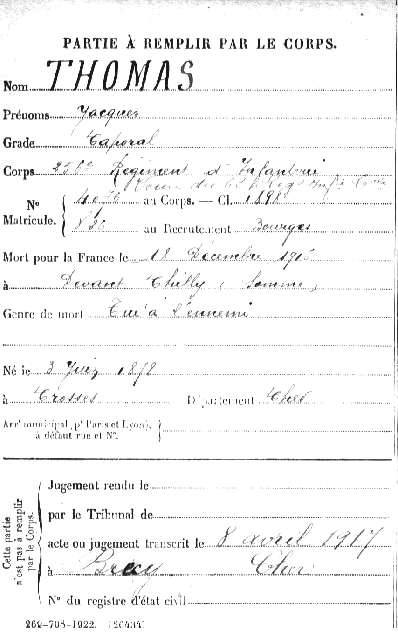 PARTIE À REMPLIR PAR LE CORPS.
Nom THOMAS
Prénoms Jacques
Grade Caporal
Corps Régiment d'Infanterie
N° au Corps. — Cl. 1898
Matricule. au Recrutement Bourges
Mort pour la France le 18 Décembre
à Devant Chilly (Somme)
Genre de mort Tué à l'ennemi
Né le 3 Juin 1878
à Crosses Département Cher
Arrt municipal (pr Paris et Lyon),
à défaut rue et N°.
Cette partie
n'est pas à remplir
par le Corps.
Jugement rendu le
par le Tribunal de
acte ou jugement transcrit le 8 avril 1917
à Brécy Cher
N° du registre d'état civil